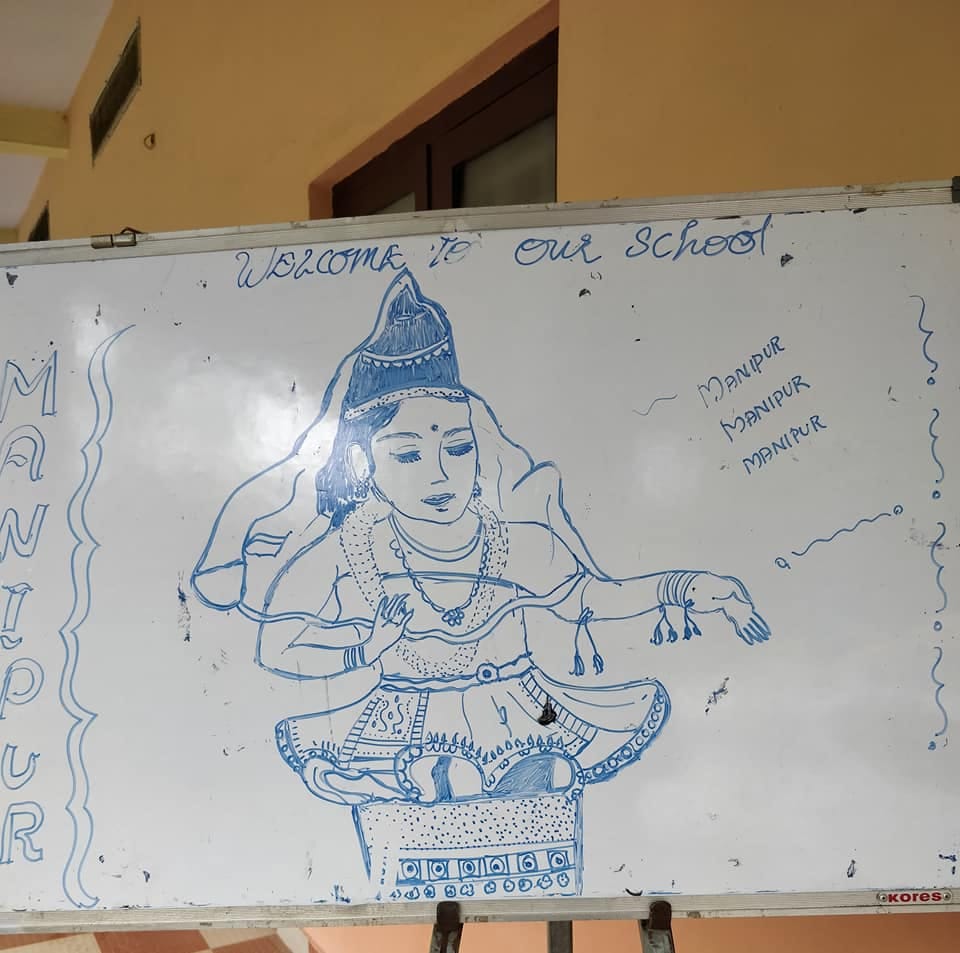 WELCOME TO OUR SCHOOL
MANIPUR
MANIPUR
MANIPUR
MANIPUR
KORES